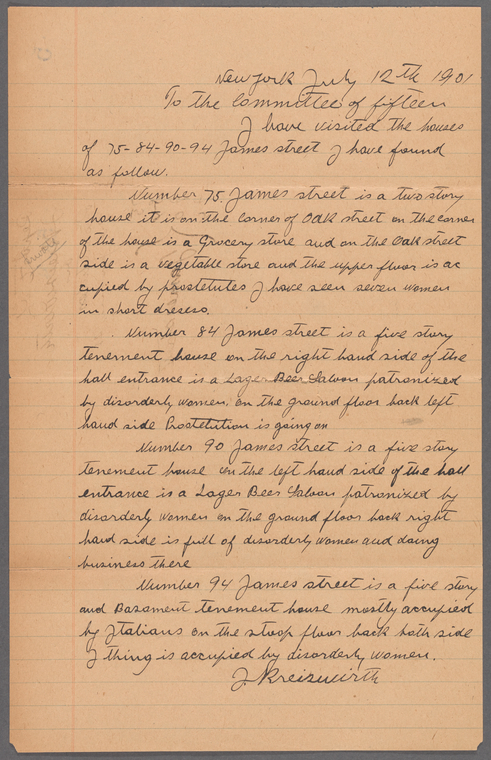 New York July 12th 1901
To the Committee of fifteen
I have visited the houses
of 75-84-90-94 James street I have found
as follow.
Number 75. James street is a two story
house it is on the corner of Oak street on the corner
of the house is a Grocery store and on the Oak street
side is a vegetable store and the upper floor is ac
cupied by prostetutes I have seen seven women
in short dresses.
Number 84 James street is a five story
tenement house on the right hand side of the
hall entrance is a Lager Beer Saloon patronized
by disorderly women. on the ground floor back left
hand side Prostetution is going on
Number 90 James street is a five story
tenement house on the left hand side of the hall
entrance is a Lager Beer Saloon patronized by
disorderly women on the ground floor back right
hand side is full of disorderly women and doing
business there
Number 94 James street is a five story
and Basament tenement house mostly accupied
by Italians on the stoop floor back both side
I thing is accupied by disorderly women.
J. Kreiswirth